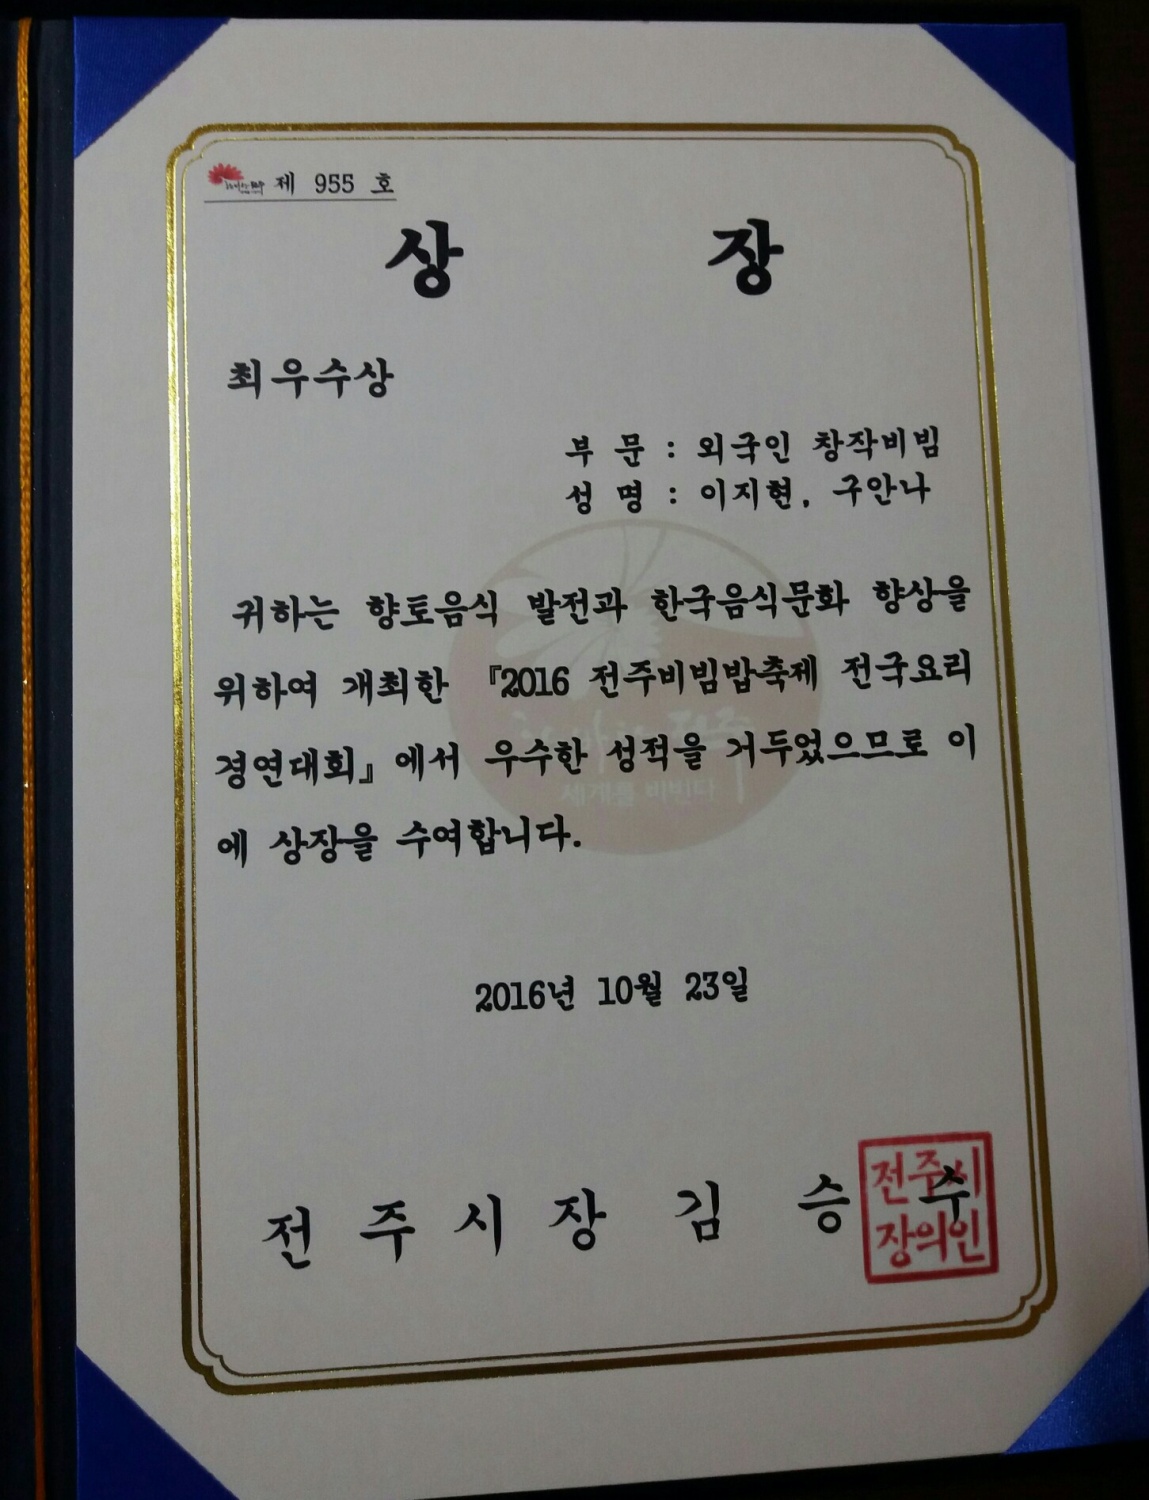 제 955 호
상 장
최우수상
부 문 : 외국인 창작비빔
성 명 : 이지현, 구안나
귀하는 향토음식 발전과 한국음식문화 향상을
위하여 개최한 『2016 전주비빔밥축제 전국요리
경연대회』에서 우수한 성적을 거두었으므로 이
에 상장을 수여합니다.
세계를 비빈다
2016년 10월 23일
전 주 시 장 김 승 수
전주시
장의인